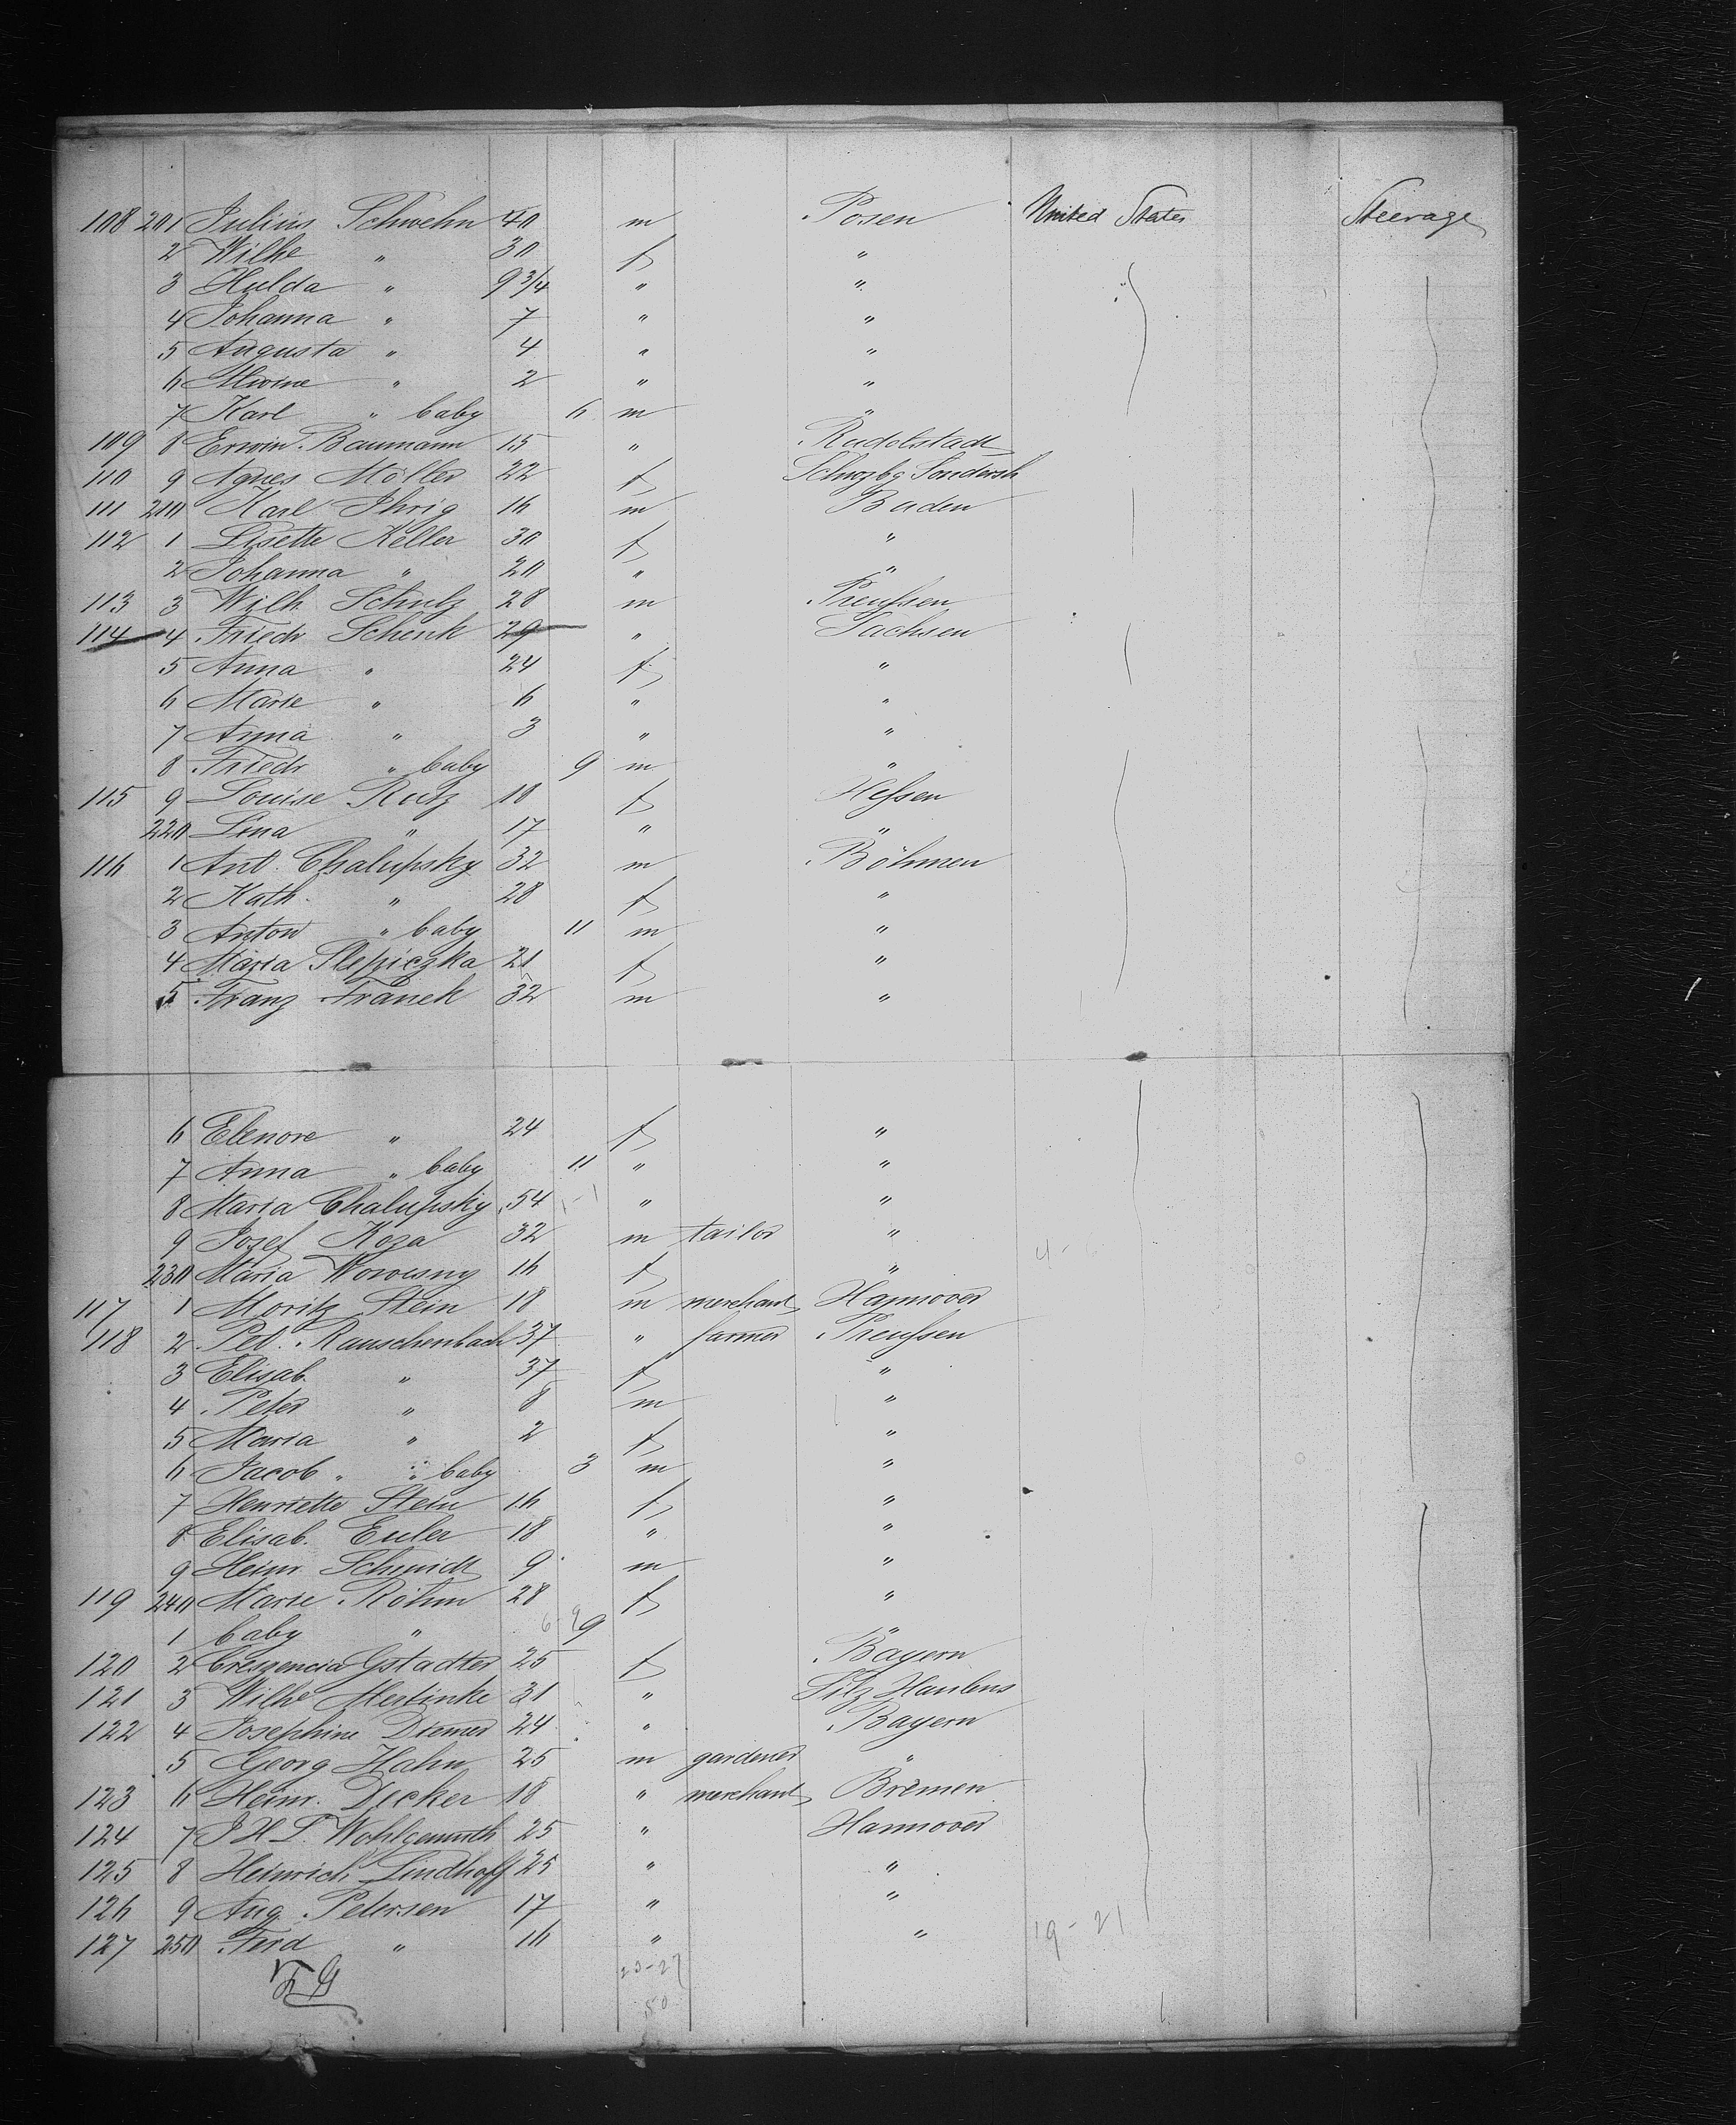 108 201 Julius Schwehn 40 m Posen United States Steerage
2 Wilhe " 30 f "
3 Hulda " 9 3/4 " "
4 Johanna " 7 " "
5 Augusta " 4 " "
6 " 2 " "
7 Karl " baby 6 m "
109 8 Erwin Baumann 15 " Rudolstadt
110 9 Agnes Möller 22 f Schwzbg Sondersh
111 210 Karl Ihrig 16 m Baden
112 1 Lisette Keller 30 f "
2 Johanna " 20 " "
113 3 Wilh Schulz 28 m Preußen
114 4 Friedr Schenk 29 " Sachsen
5 Anna " 24 f "
6 Marie " 6 " "
7 Anna " 3 " "
8 Friedr " baby 9 m "
115 9 Louise Rutz 18 f Heßen
220 Lina " 17 " "
116 1 Ant. Chalupsky 32 m Böhmen
2 Kath. " 28 f "
3 Anton " baby 11 m "
4 Maria Slepiczka 21 f "
5 Franz Franek 32 m "
6 Elenore " 24 f "
7 Anna " baby 11 " "
8 Maria Chalupsky 54 1-1 " "
9 Josef Koza 32 m tailor "
230 Maria Worvesny 16 f "
117 1 Moritz Stein 18 m merchant Hannover
118 2 Pet. Rauschenbach 37 " farmer Preußen
3 Elisab. " 37 f "
4 Peter " 8 m "
5 Maria " 2 f "
6 Jacob " baby 3 m "
7 Henriette Stein 16 f "
8 Elisab. Euler 18 " "
9 Heinr Schmidt 9 m "
119 240 Marie Röhm 28 f "
1 baby " 9 "
120 2 Creszencia Gstadter 25 f Bayern
121 3 Wilhe Mertinke 31 "
122 4 Josephine Diemer 24 " Bayern
5 Georg Hahn 25 m gardener "
123 6 Heinr. Dicker 18 " merchant Bremen
124 7 J H L Wohlgemuth 25 " Hannover
125 8 Heinrich Lindhoff 25 " "
126 9 Aug. Petersen 17 " "
127 250 Ferd " 16 " " 19-21
23-27
50